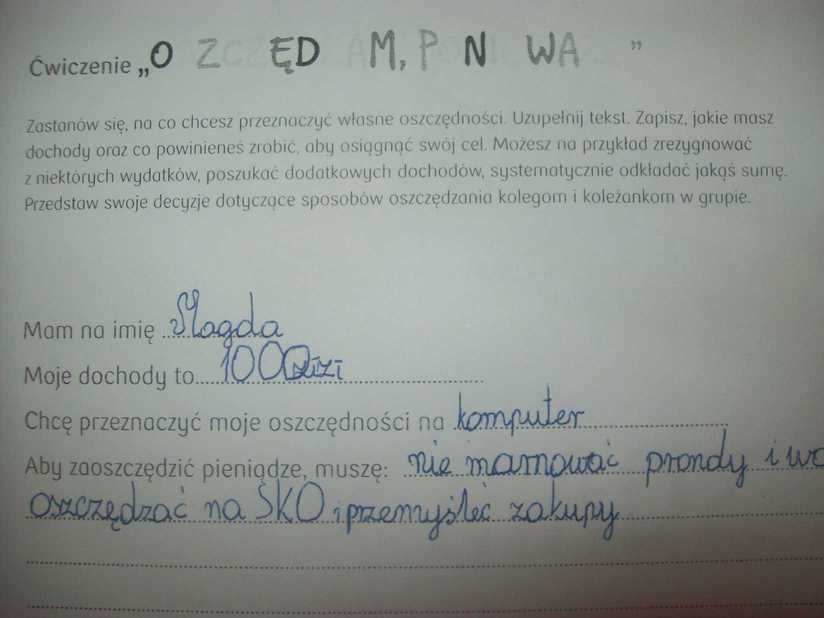 Ćwiczenie „O Z ĘD M, P N WA ”
Zastanów się, na co chcesz przeznaczyć własne oszczędności. Uzupełnij tekst. Zapisz, jakie masz
dochody oraz co powinieneś zrobić, aby osiągnąć swój cel. Możesz na przykład zrezygnować
z niektórych wydatków, poszukać dodatkowych dochodów, systematycznie odkładać jakąś sumę.
Przedstaw swoje decyzje dotyczące sposobów oszczędzania kolegom i koleżankom w grupie.
Mam na imię Magda
Moje dochody to
Chcę przeznaczyć moje oszczędności na komputer
Aby zaoszczędzić pieniądze, muszę: nie marnować prondy i wo
oszczędzać na SKO i przemyśleć zakupy